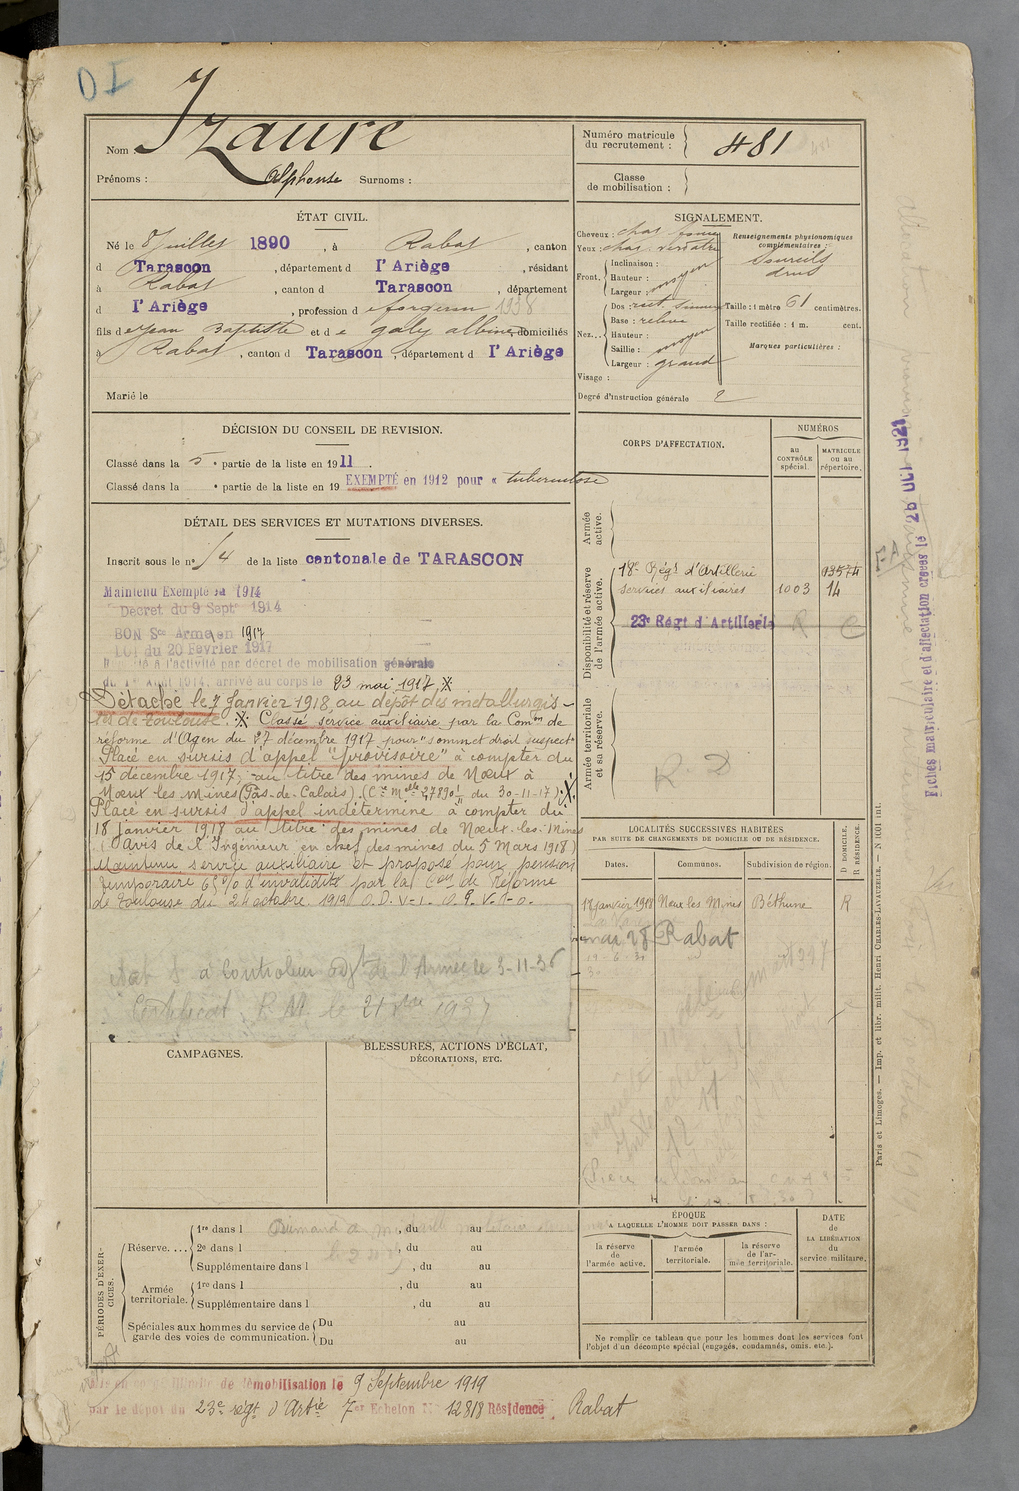 D I
Nom Izaure
Prénoms : Alphonse Surnoms :
Numéro matricule du recrutement : 481
Classe de mobilisation :
ÉTAT CIVIL.
Né le 8 Juillet 1890, à Rabat, canton
d Tarascon, département d l'Ariège, résidant
à Rabat, canton d Tarascon, département
d l'Ariège, profession de forgeron 1938
fils de Jean Baptiste et de galy albine, domiciliés
à Rabat, canton d Tarascon, département d l'Ariège
Marié le
SIGNALEMENT.
Cheveux : chat
Yeux : chat. verdatre
Front. Inclinaison :
Hauteur : moyen
Largeur :
Nez... Dos : rect. sinueux
Base : relevée
Hauteur :
Saillie : moyen
Largeur : grand
Visage :
Degré d'instruction générale 2
Renseignements physionomiques complémentaires :
Sourcils
drus
Taille : 1 mètre 61 centimètres.
Taille rectifiée : 1 m. cent.
Marques particulières :
DÉCISION DU CONSEIL DE REVISION.
Classé dans la 5e partie de la liste en 1911.
Classé dans la e partie de la liste en 19 EXEMPTÉ en 1912 pour « tuberculose
DÉTAIL DES SERVICES ET MUTATIONS DIVERSES.
Inscrit sous le n° 54 de la liste cantonale de TARASCON
Maintenu Exempté sa 1914
Decret du 9 Sept 1914
BON Sce Armé en 1917
LOI du 20 Février 1917
à l'activité par décret de mobilisation générale
du 1er Août 1914, arrivé au corps le 23 mai 1917 X
Détaché le 7 Janvier 1918, au dépôt des metallurgis-
tes de toulouse. X Classé service auxiliaire par la Comon de
réforme d'Agen du 27 décembre 1917 pour "sommet droit suspect"
Placé en sursis d'appel "provisoire" à compter du
15 décembre 1917, au titre des mines de Nœux à
Nœux les Mines (Pas-de-Calais). (Ce Melle 27890 I/11 du 30-11-17). X
Placé en sursis d'appel indéterminé à compter du
18 Janvier 1918 au titre des mines de Nœux-les-Mines
(avis de l'Ingénieur en chef des mines du 5 Mars 1918)
Maintenu service auxiliaire et proposé pour pension
temporaire 65% d'invalidité par la Con de Réforme
de Toulouse du 24 octobre 1919 O.D. V-1. O.G. V-1-0.
à Controleur Adjt de l'Armée le 3-11-36
Certificat P.M. le 21 1937
CORPS D'AFFECTATION.
NUMÉROS
au CONTRÔLE spécial.
MATRICULE ou au répertoire.
Armée active.
Disponibilité et réserve de l'armée active.
18e Régt d'Artillerie 13574
services auxiliaires 1003 14
23e Régt d'Artillerie R C
Armée territoriale et sa réserve.
R. D
LOCALITÉS SUCCESSIVES HABITÉES
PAR SUITE DE CHANGEMENTS DE DOMICILE OU DE RÉSIDENCE.
Dates. Communes. Subdivision de région. D DOMICILE. R RÉSIDENCE.
18 janvier 1918 Neux les Mines Béthune R
mai 28 Rabat
CAMPAGNES.
BLESSURES, ACTIONS D'ÉCLAT,
DÉCORATIONS, ETC.
PÉRIODES D'EXERCICES.
Réserve.... 1re dans l , du au
2e dans l , du au
Supplémentaire dans l , du au
Armée territoriale. 1re dans l , du au
Supplémentaire dans l , du au
Spéciales aux hommes du service de garde des voies de communication. Du au
Du au
ÉPOQUE
A LAQUELLE L'HOMME DOIT PASSER DANS :
la réserve de l'armée active.
l'armée territoriale.
la réserve de l'armée territoriale.
DATE DE LA LIBÉRATION du service militaire.
Ne remplir ce tableau que pour les hommes dont les services font
l'objet d'un décompte spécial (engagés, condamnés, omis, etc.).
de démobilisation le 9 Septembre 1919
par le dépôt du 23e régt d'Artie 7er Echelon N° 12818 Résidence Rabat
Fiches matriculaire et d'affectation créées le
Paris et Limoges. — Imp. et libr. milit. Henri CHARLES-LAVAUZELLE. —